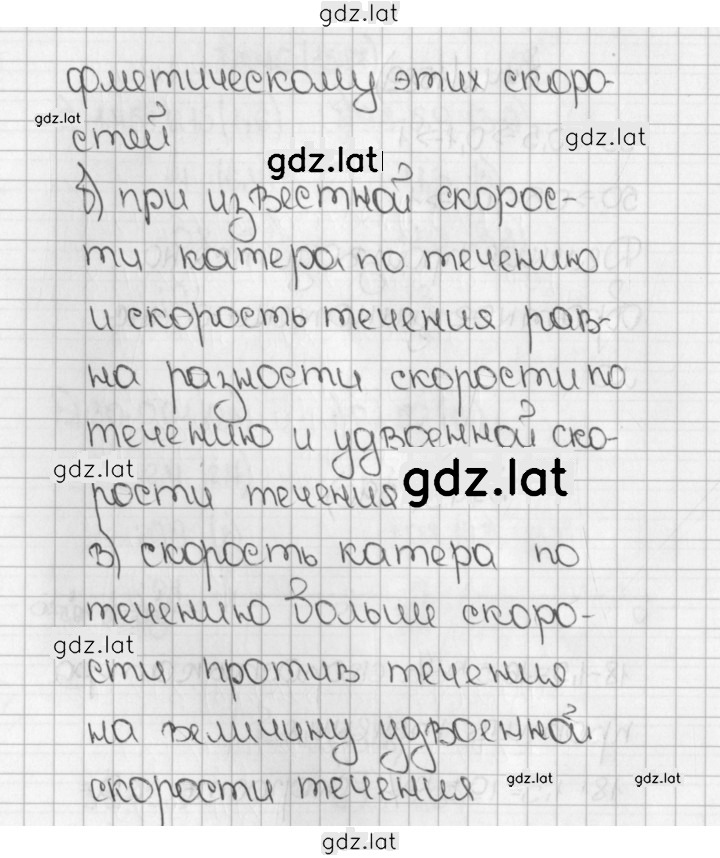 gdz.lat
фметическому этих скоро-
gdz.lat
стей
gdz.lat
gdz.lat
б) при известной скорос-
ти катера по течению
и скорость течения рав-
на разности скорости по
течению и удвоенной ско-
gdz.lat
рости течения
gdz.lat
в) скорость катера по
течению больше скоро-
gdz.lat
сти против течения
на величину удвоенной
скорости течения
gdz.lat
gdz.lat
gdz.lat